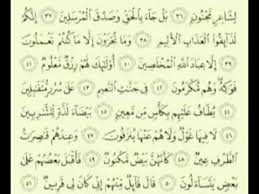 لِشَاعِرٍ مَّجْنُونٍ ٣٦ بَلْ جَآءَ بِٱلْحَقِّ وَصَدَّقَ ٱلْمُرْسَلِينَ ٣٧ إِنَّكُمْ
لَذَآئِقُوا۟ ٱلْعَذَابِ ٱلْأَلِيمِ ٣٨ وَمَا تُجْزَوْنَ إِلَّا مَا كُنتُمْ تَعْمَلُونَ ٣٩
إِلَّا عِبَادَ ٱللَّهِ ٱلْمُخْلَصِينَ ٤٠ أُو۟لَٰٓئِكَ لَهُمْ رِزْقٌ مَّعْلُومٌ ٤١
فَوَٰكِهُ وَهُم مُّكْرَمُونَ ٤٢ فِى جَنَّٰتِ ٱلنَّعِيمِ ٤٣ عَلَىٰ سُرُرٍ مُّتَقَٰبِلِينَ ٤٤
يُطَافُ عَلَيْهِم بِكَأْسٍ مِّن مَّعِينٍ ٤٥ بَيْضَآءَ لَذَّةٍ لِّلشَّٰرِبِينَ ٤٦
لَا فِيهَا غَوْلٌ وَلَا هُمْ عَنْهَا يُنزَفُونَ ٤٧ وَعِندَهُمْ قَٰصِرَٰتُ
ٱلطَّرْفِ عِينٌ ٤٨ كَأَنَّهُنَّ بَيْضٌ مَّكْنُونٌ ٤٩ فَأَقْبَلَ بَعْضُهُمْ عَلَىٰ
بَعْضٍ يَتَسَآءَلُونَ ٥٠ قَالَ قَآئِلٌ مِّنْهُمْ إِنِّى كَانَ لِى قَرِينٌ ٥١